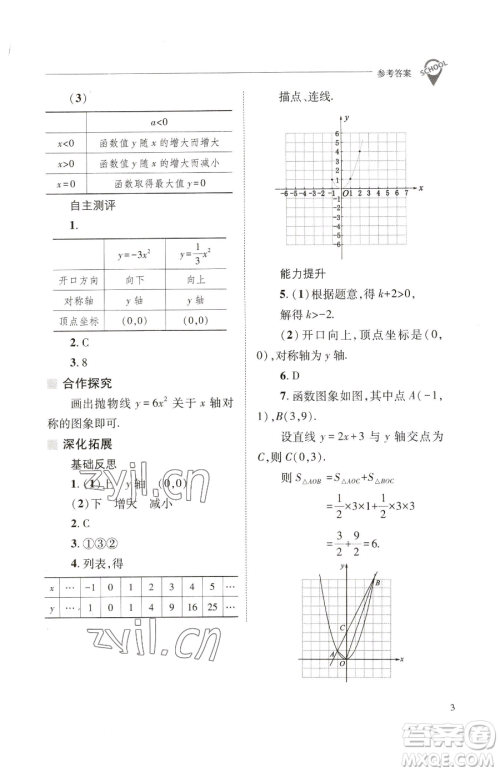 参考答案
SCHOOL
(3)
a<0
x<0 函数值 y 随 x 的增大而增大
x>0 函数值 y 随 x 的增大而减小
x=0 函数取得最大值 y=0
自主测评
1.
y=-3x² y=1/3x²
开口方向 向下 向上
对称轴 y 轴 y 轴
顶点坐标 (0,0) (0,0)
2. C
3. 8
合作探究
画出抛物线 y=6x² 关于 x 轴对
称的图象即可.
深化拓展
基础反思
1. (1)上 y 轴 (0,0)
(2)下 增大 减小
2. C
3. ①③②
4. 列表,得
x … -1 0 1 2 3 4 5 …
y … 1 0 1 4 9 16 25 …
描点、连线.
y
6
5
4
3
2
1
-6 -5 -4 -3 -2 -1 O 1 2 3 4 5 6 7 x
-1
-2
-3
-4
-5
-6
能力提升
5. (1)根据题意,得 k+2>0,
解得 k>-2.
(2)开口向上,顶点坐标是(0,
0),对称轴为 y 轴.
6. D
7. 函数图象如图,其中点 A(-1,
1),B(3,9).
设直线 y=2x+3 与 y 轴交点为
C,则 C(0,3).
则 S△AOB=S△AOC+S△BOC
=1/2×3×1+1/2×3×3
=3/2+9/2=6.
y
B
C
A
O
x
3
zyjl.cn
zyjl.cn
答案圈
MXQE.COM